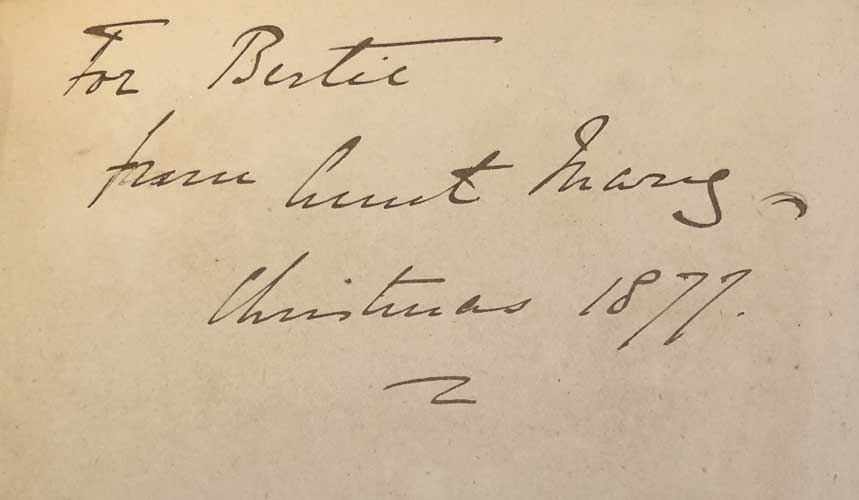 For Bertie
from Aunt Mary
Christmas 1877.